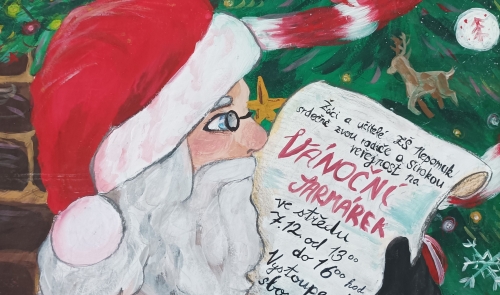 Žáci a učitelé ZŠ Nepomuk
srdečně zvou rodiče a širokou
veřejnost na
VÁNOČNÍ
JARMÁREK
ve středu
7.12. od 13⁰⁰
do 16⁰⁰ hod
Vystoupe
sbo